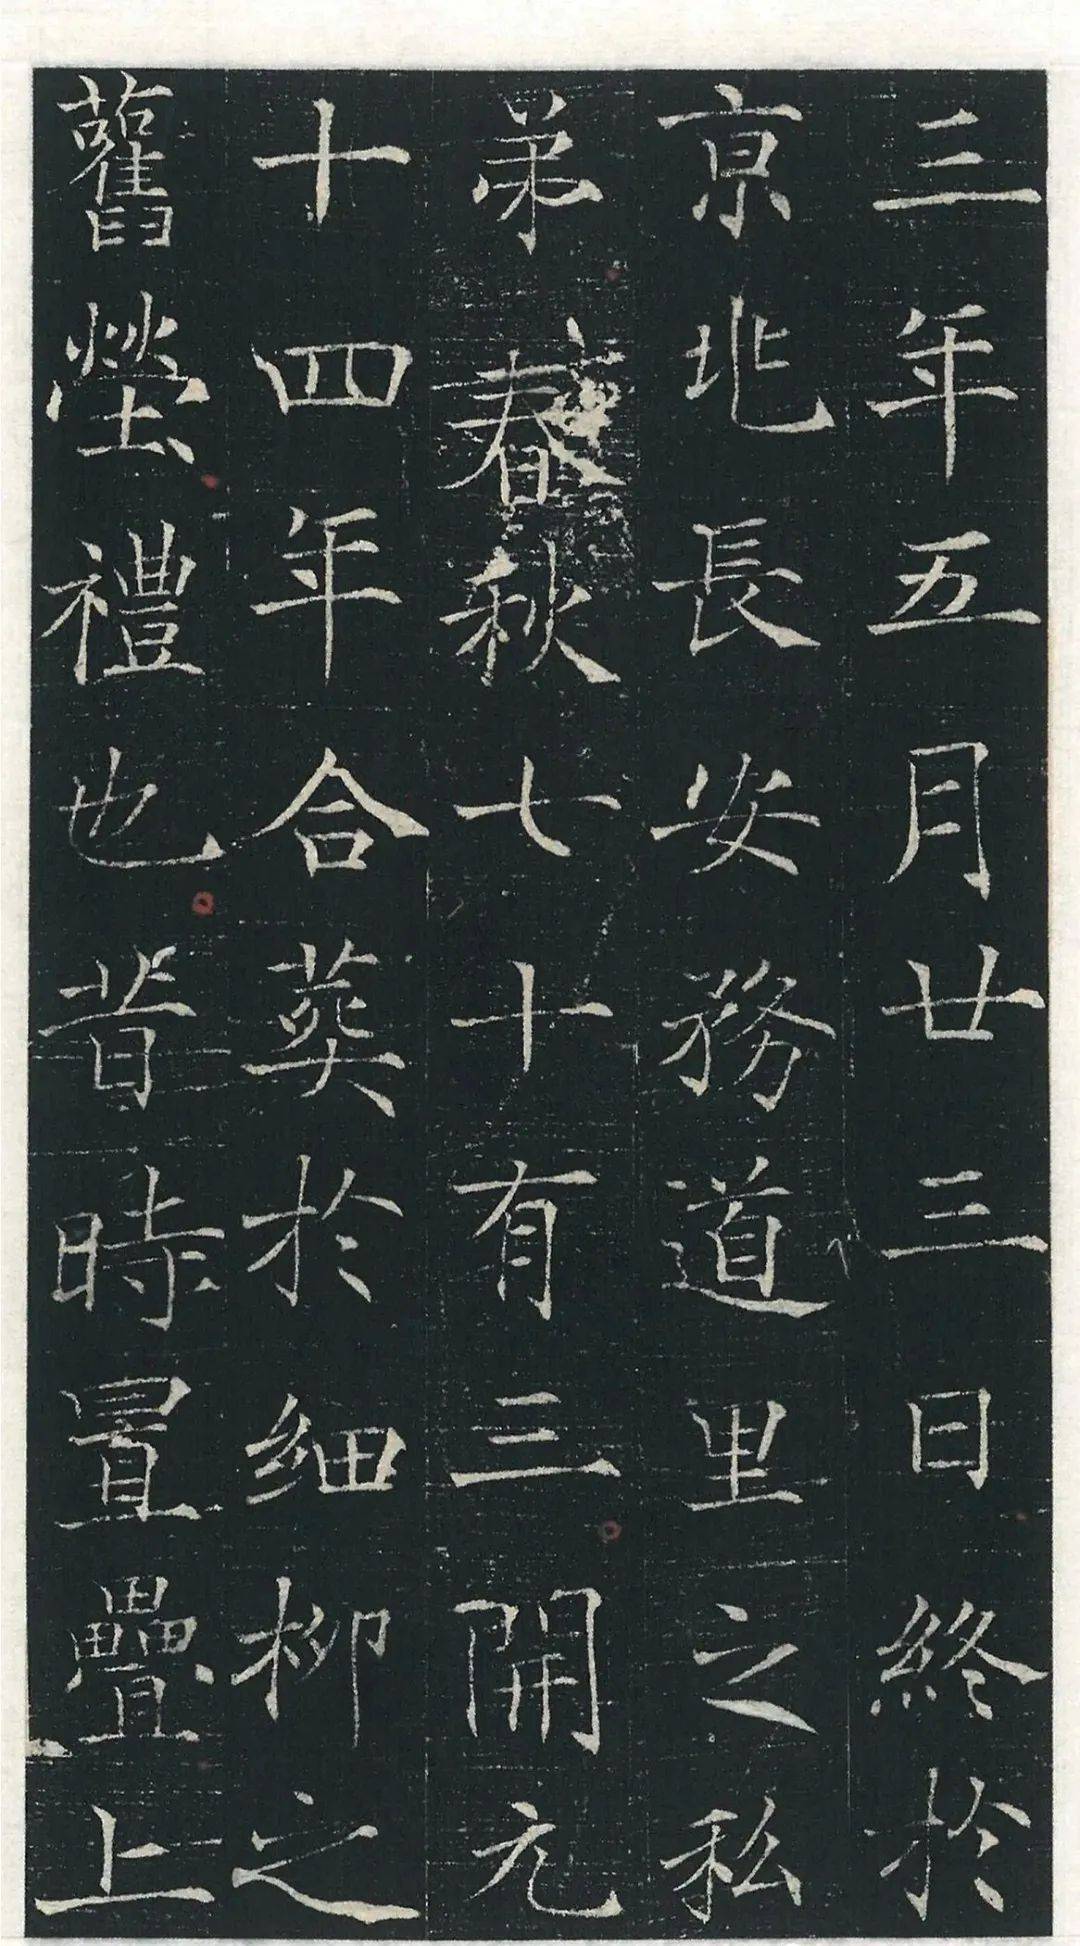 三年五月廿三日終於
京兆長安務道里之私
弟春秋七十有三開元
十四年合葬於細柳之
舊塋禮也昔時晝疊上